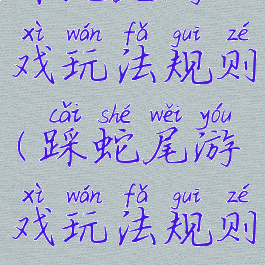 xì wán fǎ guī zé
戏玩法规则
cǎi shé wěi yóu
(踩蛇尾游
xì wán fǎ guī zé
戏玩法规则